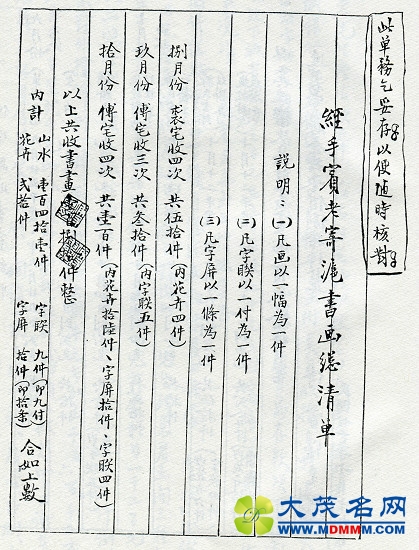 此单務乞妥存以便随時核對
經手賓老寄滬書画總清单
說明：(一)凡画以一幅為一件
(二)凡字联以一付為一件
(三)凡字屏以一條為一件
捌月份 裘宅收四次 共伍拾件(內花卉四件)
玖月份 傅宅收三次 共叁拾件(內字联五件)
拾月份 傅宅收四次 共壹百件(內花卉拾陸件、字屏拾件、字联四件)
以上共收書畫捌拾件整
內計 山水 壹百四拾壹件 字联 九件(即九付)
花卉 弍拾件 字屏 拾件(即拾条) 合如上數
大茂名网
WWW.MDMMM.COM